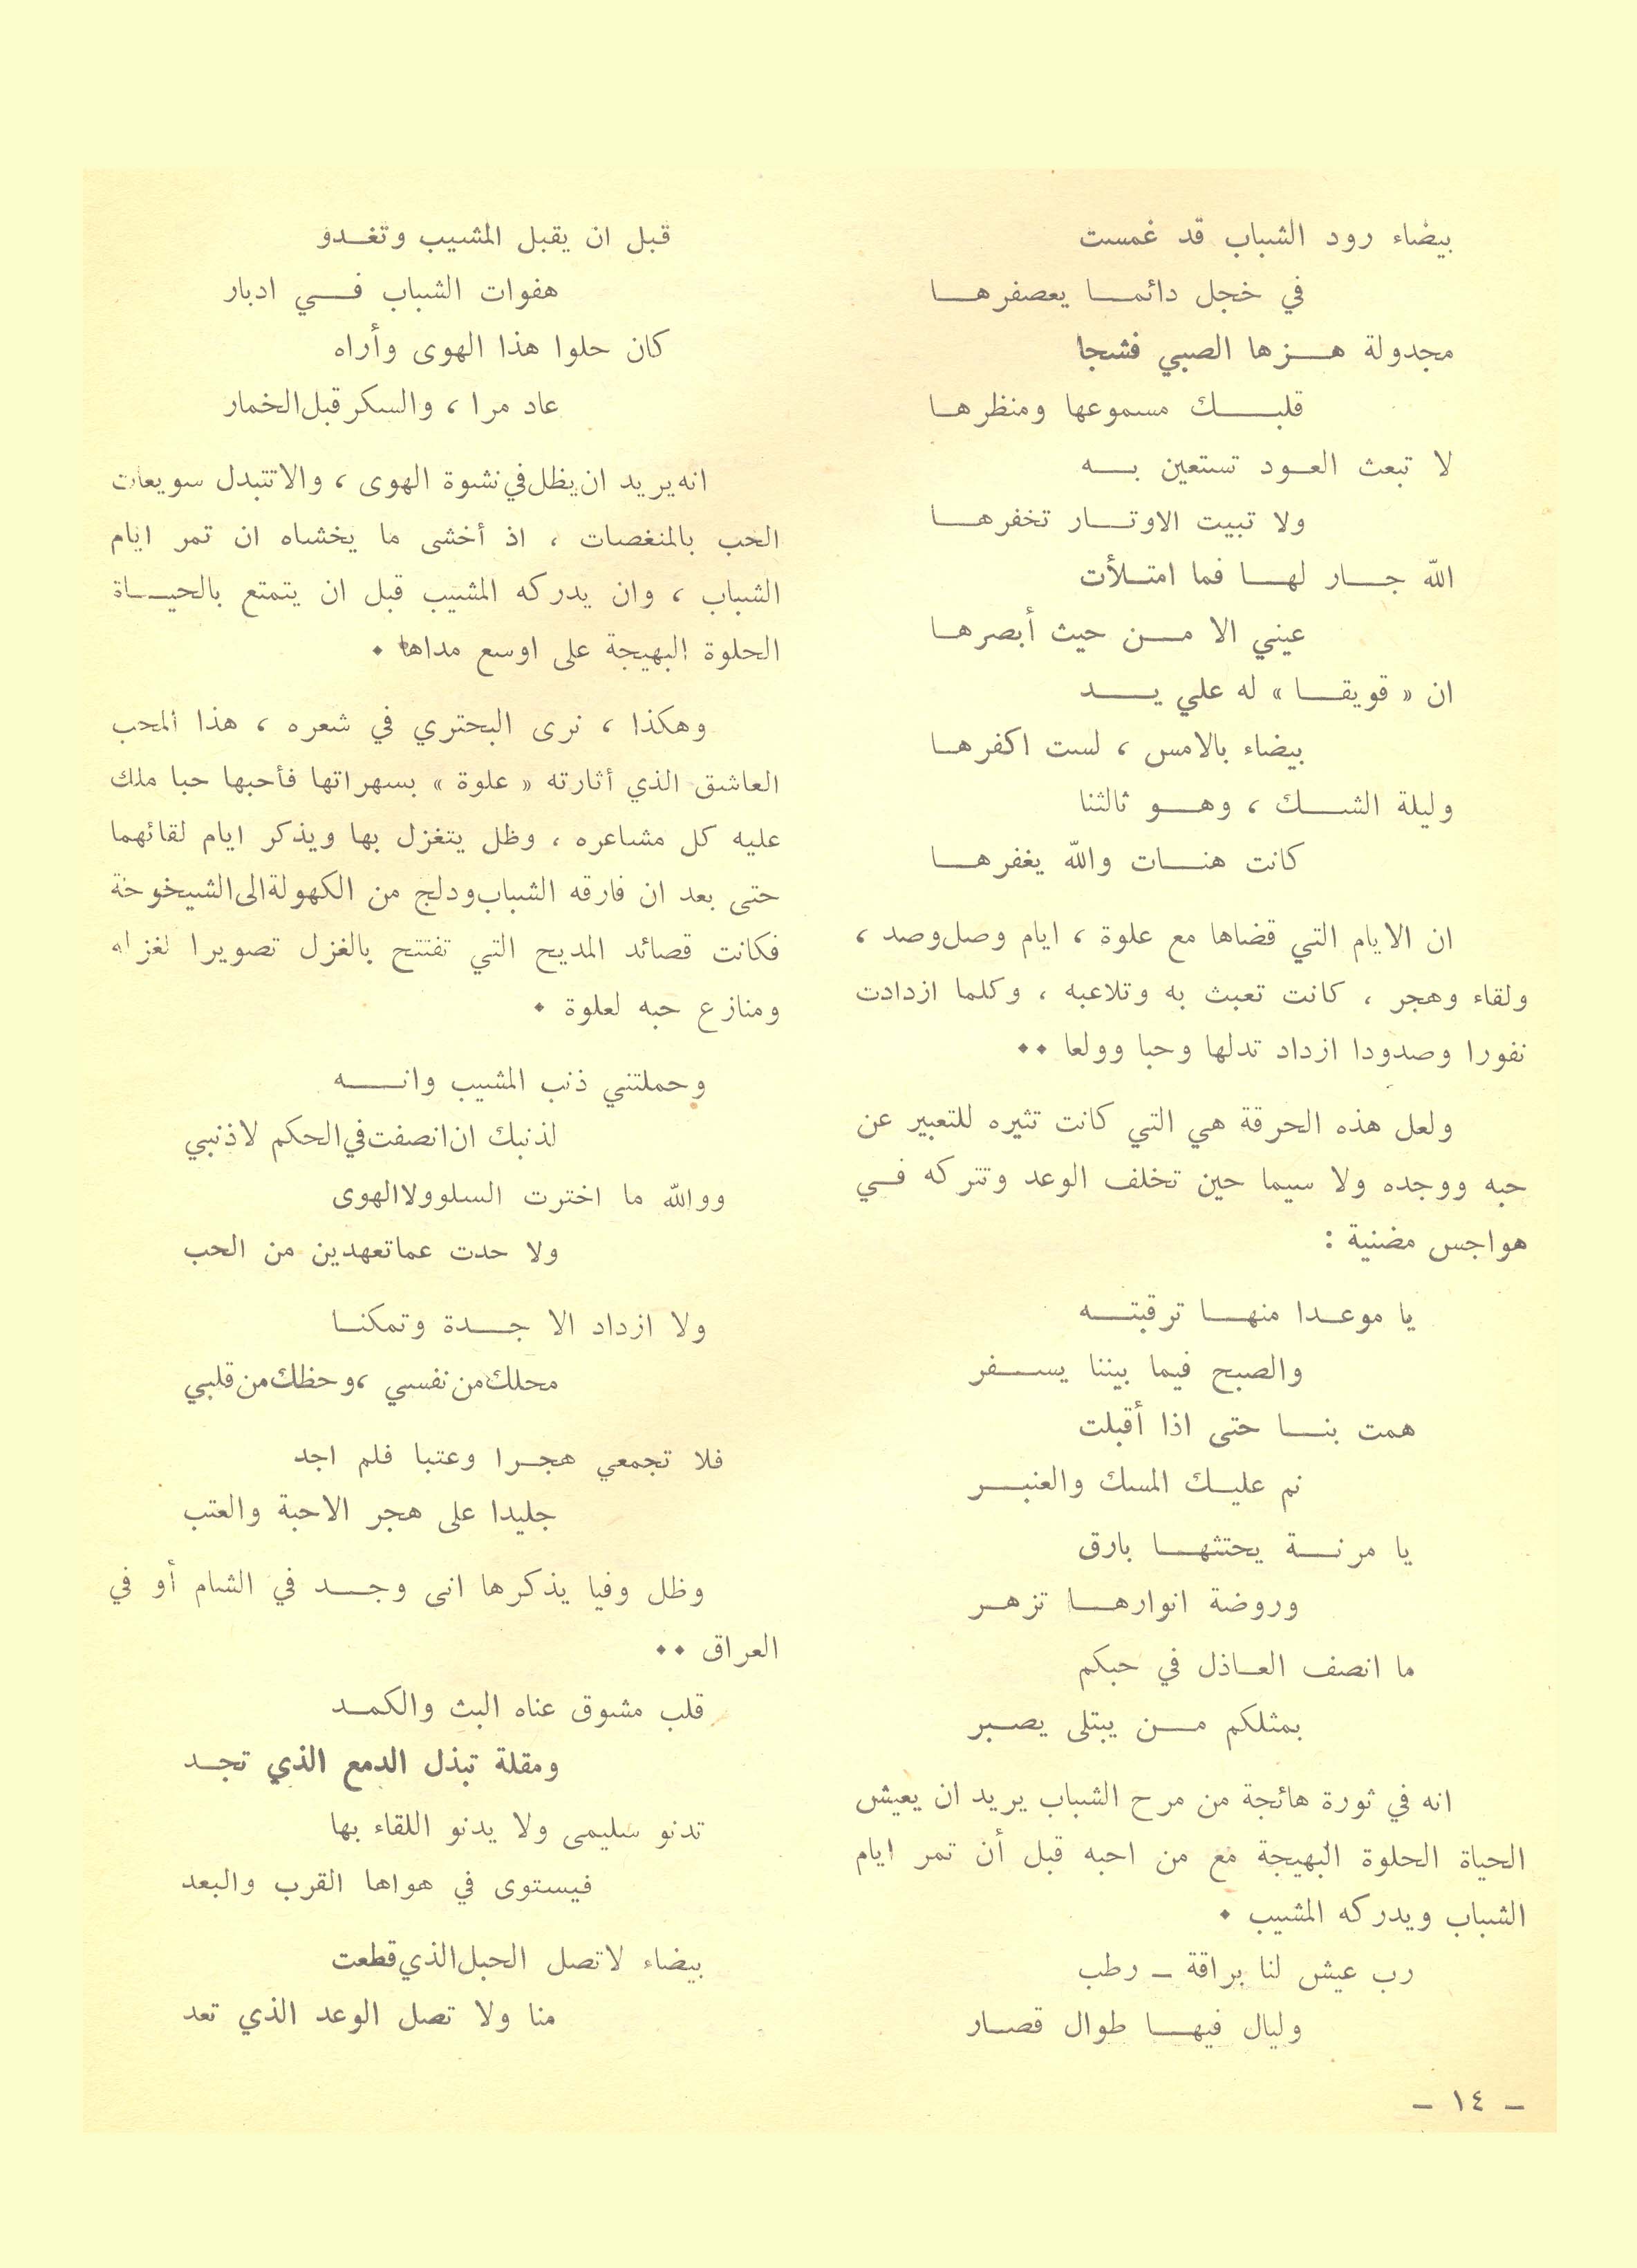 بيضاء رود الشباب قد غمست
في خجل دائمـــا يعصفرهــا
مجدولة هــزها الصبي فشجا
قلبــــك مسموعها ومنظرهـا
لا تبعث العــود تستعين بــه
ولا تبيت الاوتــار تخفرهــا
الله جـــار لهــا فما امتـلأت
عيني الا مـــن حيث أبصرهـا
ان « قويقــا » له علي يـــد
بيضاء بالامس ، لست اكفرهـا
وليلة الشــك ، وهــو ثالثنا
كانت هنــات والله يغفرهــا
ان الايام التي قضاها مع علوة ، ايام وصل وصد ،
ولقاء وهجر ، كانت تعبث به وتلاعبه ، وكلما ازدادت
نفورا وصدودا ازداد تدلها وحبا وولعا ٠٠
ولعل هذه الحرقة هي التي كانت تثيره للتعبير عن
حبه ووجده ولا سيما حين تخلف الوعد وتتركه فــي
هواجس مضنية :
يا موعــدا منهــا ترقبتــه
والصبح فيما بيننا يســفر
همت بنــا حتى اذا أقبلت
نم عليــك المسك والعنبــر
يا مرنــة يحتثهــا بارق
وروضة انوارهــا تزهـر
ما انصف العـاذل في حبكم
بمثلكم مــن يبتلى يصـبر
انه في ثورة هائجة من مرح الشباب يريد ان يعيش
الحياة الحلوة البهيجة مع من احبه قبل أن تمر ايام
الشباب ويدركه المشيب ٠
رب عيش لنا براقة ــ رطب
وليال فيهــا طوال قصـار
قبل ان يقبل المشيب وتغـدو
هفوات الشباب فــي ادبار
كان حلوا هذا الهوى وأراه
عاد مرا ، والسكر قبل الخمار
انه يريد ان يظل في نشوة الهوى ، والا تتبدل سويعات
الحب بالمنغصات ، اذ أخشى ما يخشاه ان تمر ايام
الشباب ، وان يدركه المشيب قبل ان يتمتع بالحيــاة
الحلوة البهيجة على اوسع مداها ٠
وهكذا ، نرى البحتري في شعره ، هذا المحب
العاشق الذي أثارته « علوة » بسهراتها فأحبها حبا ملك
عليه كل مشاعره ، وظل يتغزل بها ويذكر ايام لقائهما
حتى بعد ان فارقه الشباب ودلج من الكهولة الى الشيخوخة
فكانت قصائد المديح التي تفتتح بالغزل تصويرا لغزله
ومنازع حبه لعلوة ٠
وحملتني ذنب المشيب وانـــه
لذنبك ان انصفت في الحكم لا ذنبي
ووالله ما اخترت السلو ولا الهوى
ولا حدت عما تعهدين من الحب
ولا ازداد الا جــدة وتمكنـا
محلك من نفسي ، وحظك من قلبي
فلا تجمعي هجـرا وعتبا فلم اجد
جليدا على هجر الاحبة والعتب
وظل وفيا يذكرها انى وجــد في الشام أو في
العراق ٠٠
قلب مشوق عناه البث والكمـد
ومقلة تبذل الدمع الذي تجـد
تدنو سليمى ولا يدنو اللقاء بها
فيستوى في هواها القرب والبعد
بيضاء لا تصل الحبل الذي قطعت
منا ولا تصل الوعد الذي تعد
ــ ١٤ ــ